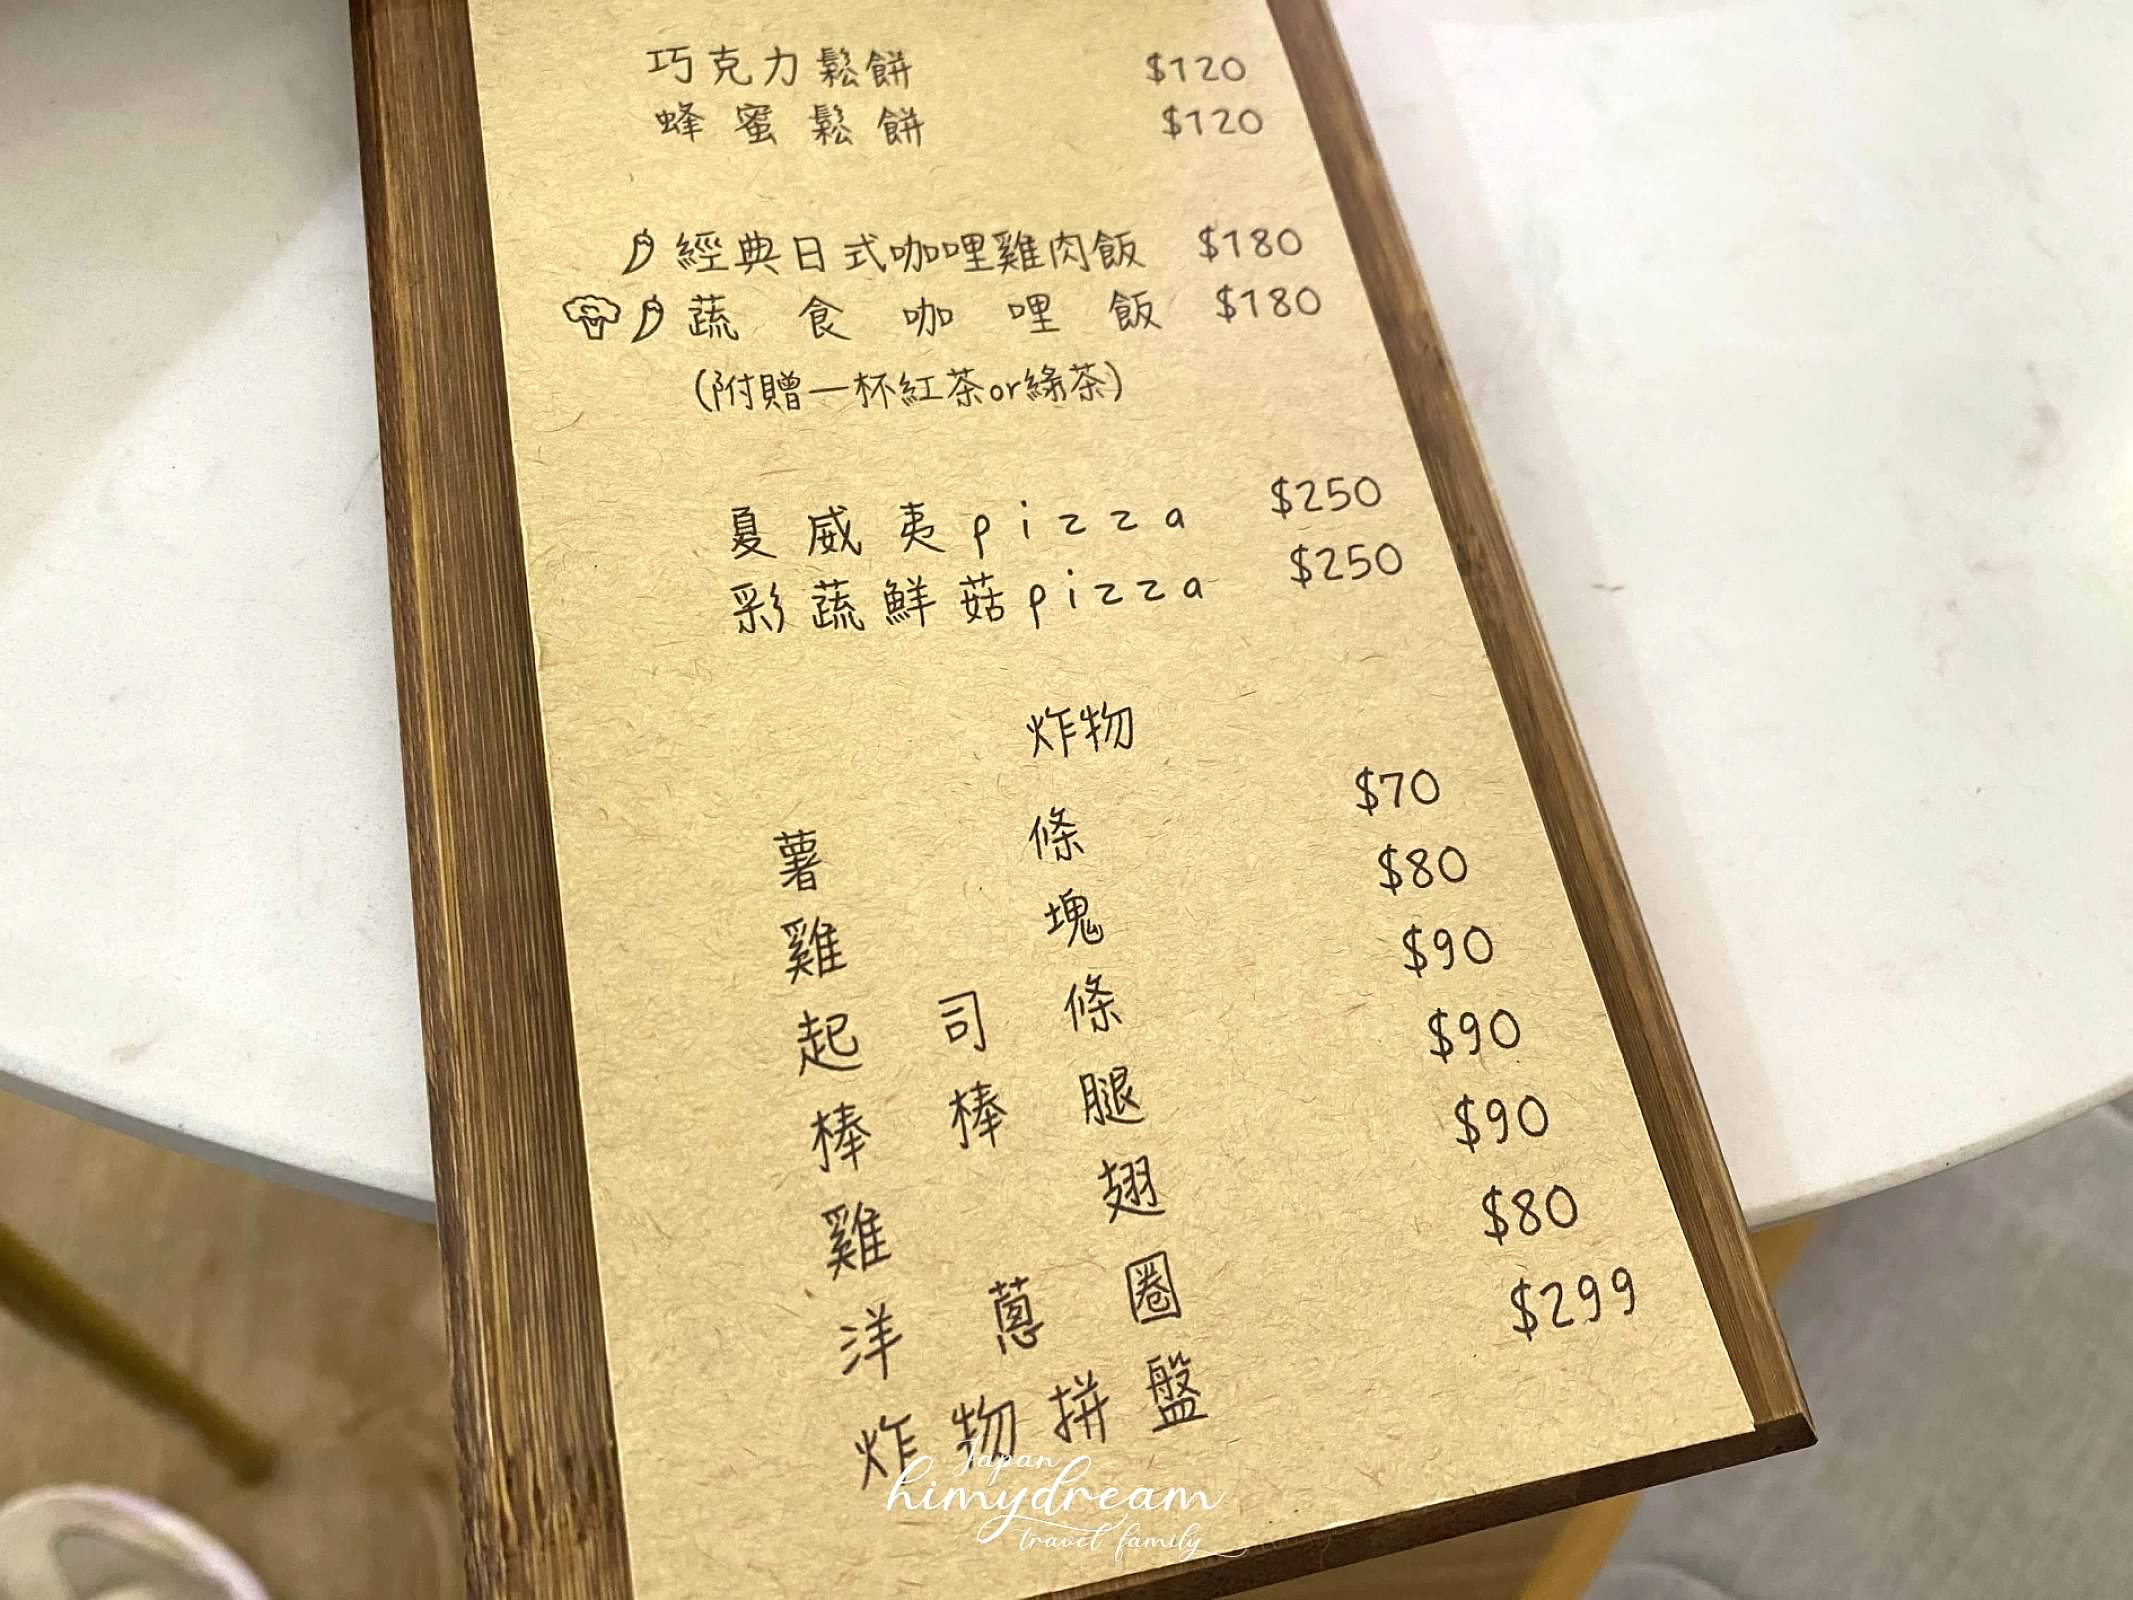 巧克力鬆餅 $120
蜂蜜鬆餅 $120
經典日式咖哩雞肉飯 $180
蔬食咖哩飯 $180
(附贈一杯紅茶or綠茶)
夏威夷pizza $250
彩蔬鮮菇pizza $250
炸物
薯條 $70
雞塊 $80
起司條 $90
棒棒腿 $90
雞翅 $90
洋蔥圈 $80
炸物拼盤 $299
Japan
himydream
travel family